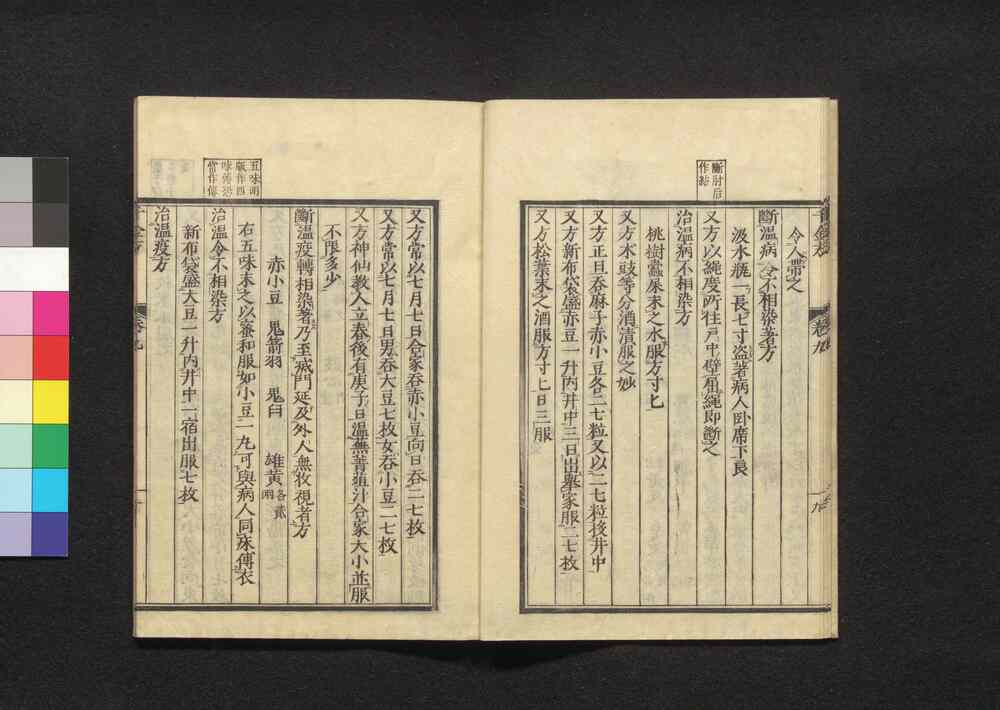 斷肘后
作始
令人帶之
斷溫病令不相染著方
汲水瓶一長七寸盜著病人臥席下良
又方以繩度所住戶中壁屈繩即斷之
治溫病不相染方
桃樹蠹屎末之水服方寸匕
又方水豉等分酒漬服之妙
又方正旦吞麻子赤小豆各二七粒又以二七粒投井中
又方新布袋盛赤豆一升內井中三日出舉家服二七枚
又方松葉末之酒服方寸匕日三服
五味明
版作四
味傳恐
當作傅
又方常以七月七日合家吞赤小豆向日吞二七枚
又方常以七月七日男吞大豆七枚女吞小豆二七枚
又方神仙教人立春後有庚子日溫蕪菁葅汁合家大小並服
不限多少
斷溫疫轉相染著乃至滅門延及外人無收視者方
赤小豆 鬼箭羽 鬼臼 雄黃各貳兩
右五味末之以蜜和服如小豆一丸可與病人同床傳衣
治溫令不相染方
新布袋盛大豆一升內井中一宿出服七枚
治溫疫方
千金方
卷九